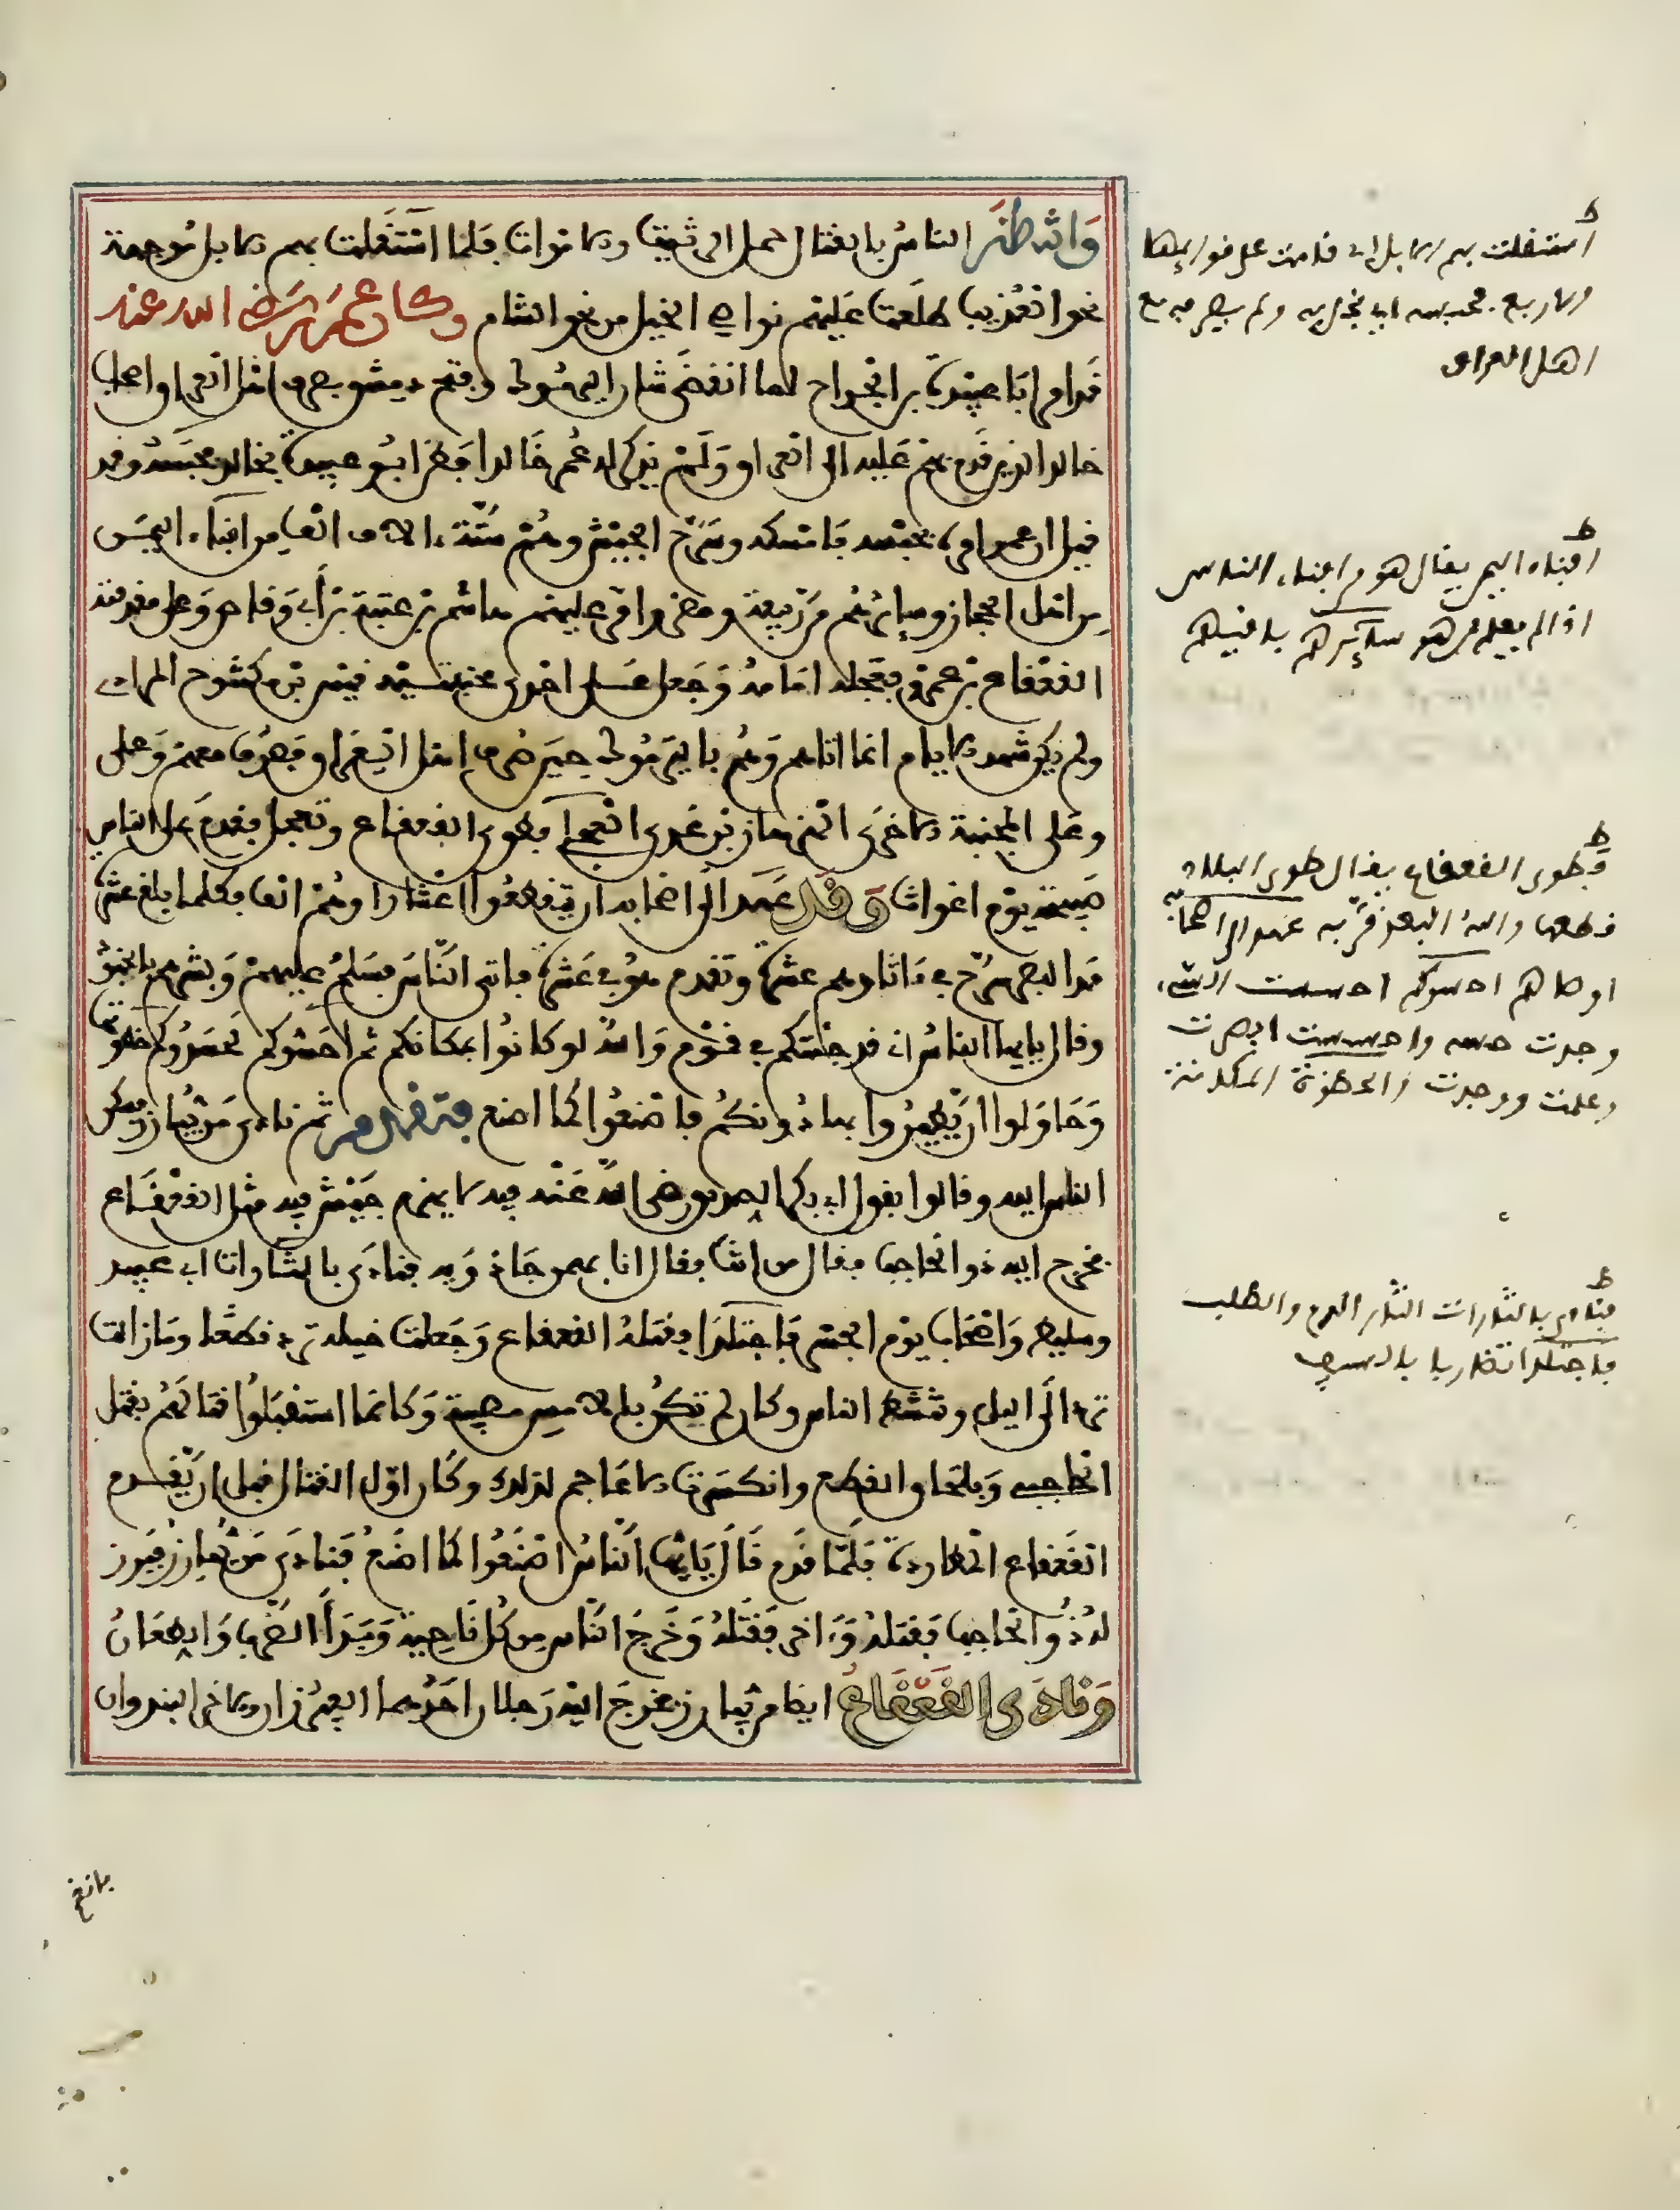 وَانتظر الناسُ بالقتال حمل الرثيث والاموات فلما استَقلت بهم الابل مُوجهة
نحو العُذيب طلعت عَليهم نواصي الخيل من نحو الشام وكان عمر رضي الله عنه
قد امر ابا عبيدة بن الجراح لما انقضى شان اليرموك وفتح دمشق بصرف اهل العراق اصحاب
خالد الذين قدم بهم عليه الى العراق وَلَمْ يذكر له عُمر خالدا فضن ابو عبيدة بخالد فحبسه وقد
قيل ان عمر امره بحبسه فامسكه وسَرّح الجيش وهُمْ ستّة ءالاف الف من افناء اليمن
من اهل الحجاز وسائرهُم من ربيعة ومضر وامّر عليهم هاشم بن عتبة بن أبي وقاص وَعلى مقدمته
القعقاع بن عمرو فعجله امامه وَجعل على احدى مجنبتيه قيس بن مكشوح المرادي
ولم يكن شهد الايام انما اتاهم وَهُم باليَرمُوك حين صُرف اهل العراق فصُرف معهم وَعلى
وعَلى المجنبة الاخرى الهزهاز بن عَمرو العجلي فطوى القعقاع وتعجل فقدمَ على الناس
صبيحة يوم اغواث وَقد عَهد الَى اصحابه ان يتقطعُوا اعشارا وهُمْ الف فكلما بلغ عشرة
مدا البصر سُرّح في ءاثارهم عشرة وتقدم هُو في عَشرة فاتى النَّاسَ فسَلمَ عليهمْ وَبشرهم بالجنود
وقال يا ايها الناسُ اني قد جئتكم في قوم وَالله لو كانُوا بمكانكم ثم احَسُّوكم لحَسَدُوكم حظوتها
وَحَاوَلوا ان يَّطيرُوا بها دُونكُم فاصْنعُوا كما اصنع فتقدم ثم نادى مَن يُّبارز فسكن
الناس اليه وقالوا بقول ابي بكر الصديق رضي اللهُ عَنْه فيه لا يهزم جَيْش فيه مثل القعقاع
فخرج اليه ذو الحاجب فقال من انت فقال انا بهمن جَاذَوَيه فنادى يا لثارات ابي عبيد
وسليط وَاصحَاب يَوم الجسر فَاجتَلدَا فقتَلهُ القعقاع وَجَعلت خيله ترد قطعا ومَا زالت
ترد الَى الليل وتنشط الناس وكان لم تكن بالامس مصيبة وَكانما استقبَلُوا قتالهُم بقتل
الحاجبي وَبلحاق القطع وانكسَرت الاعَاجم لذلك وكان اوّل القتال قبل ان يَّقدم
القعقاع المطاردة فلَمّا قدم قَالَ يَا ايها النَّاسُ اصْنَعُوا كما اصْنَعُ فَنادَى مَن يُّبارز فبَرز
له ذُو الحَاجب فقتلهُ وَءاخر فَقتَلهُ وَخَرجَ النّاس من كُل نَاحية وَبَدَأ الضرب وَالطِّعَانُ
وَنادَى القعقاعُ ايضا من يُّبارز فخرجَ اليه رَجلان احَدُهما البيرُزان والاخر البندوان
استقلت بهم الابل اي قامت على قوائمها
الاربع فحبسه اي بخل به ولم يصرفه مع
اهل العراق
افناء اليمن يقال هو من افناء الناس
اذا لم يعلم من هو سائرهم باقيهم
فطوى القعقاع يقال طوى البلاد
قطعها والله البعد قربه عهد الى اصحابه
اوصاهم احسوكم احسست الشيء
وجدت حسه واحسست ابصرت
وعلمت ووجدت والحظوة المكانة
فنادى يا لثارات الثار الدم والطلب
فاجتلدا تضاربا بالسيف
بانغ